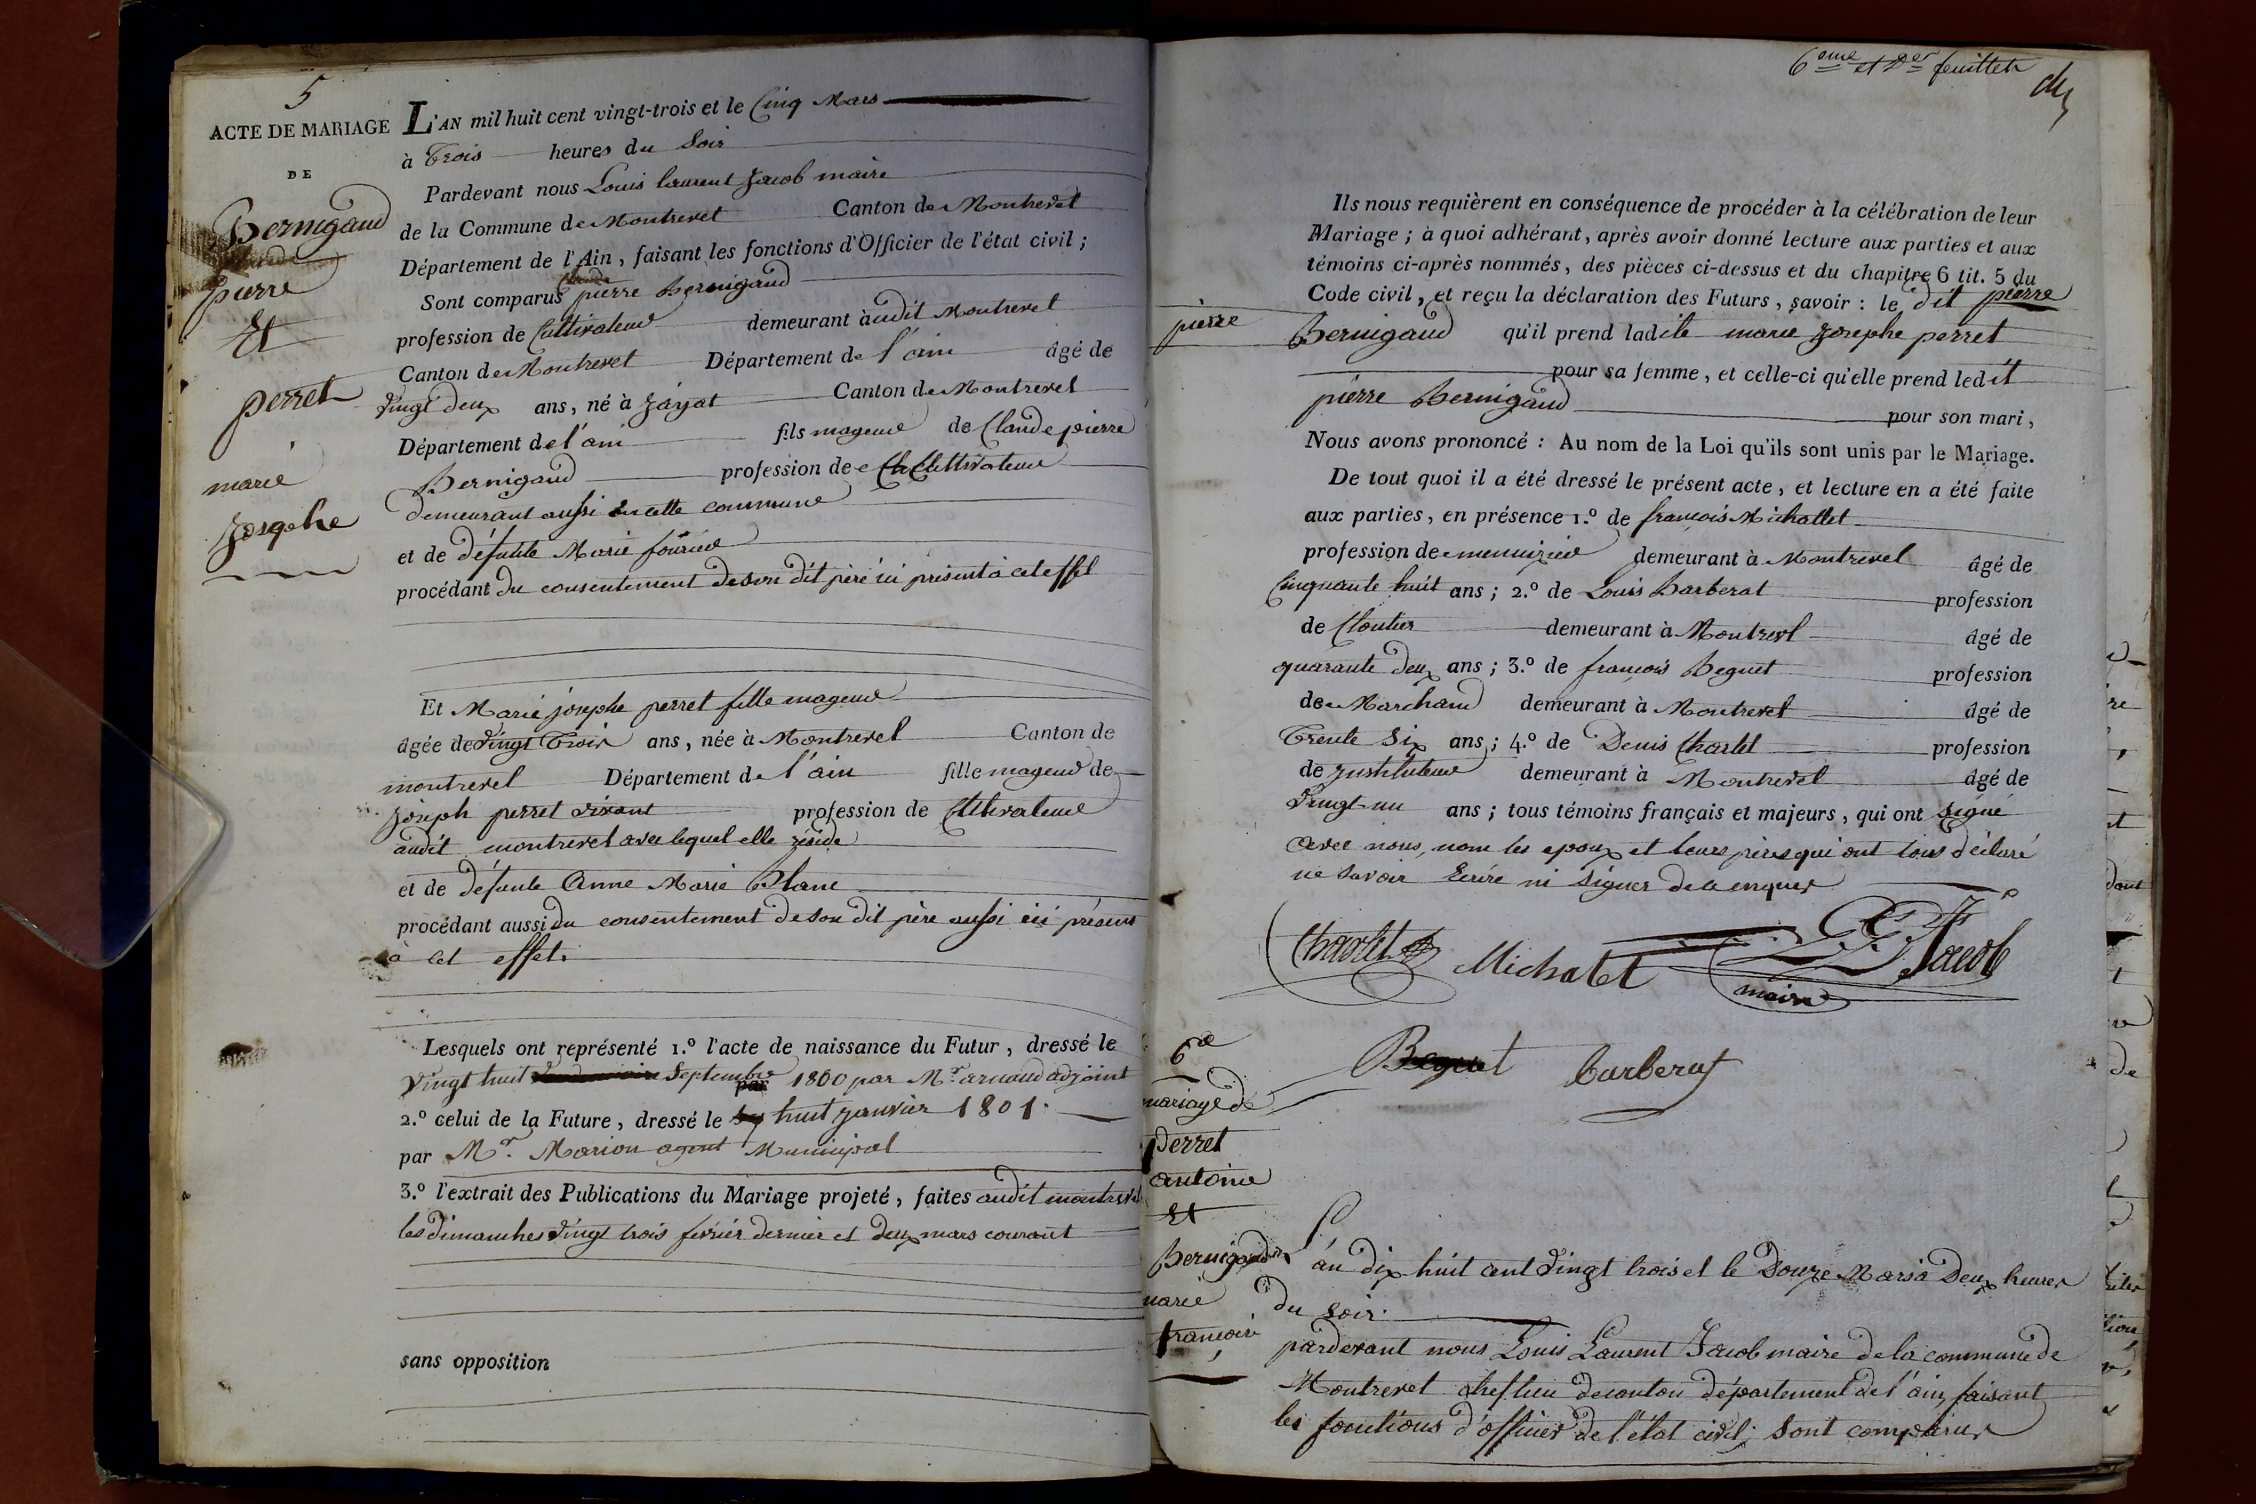 5
ACTE DE MARIAGE
DE
Bernigaud
pierre
Et
perret
marie
Josephe
L'AN mil huit cent vingt-trois et le Cinq Mars
à Trois heures du Soir
Pardevant nous Louis laurent Jacob maire
de la Commune de Montrevel Canton de Montrevel
Département de l'Ain, faisant les fonctions d'Officier de l'état civil;
Sont comparus pierre Bernigaud
profession de Cultivateur demeurant audit Montrevel
Canton de Montrevel Département de l'ain âgé de
vingt deux ans, né à Jayat Canton de Montrevel
Département de l'ain fils mageur de Claude pierre
Bernigaud profession de Cultivateur
demeurant aussi en cette commune
et de défunte Marie fourier
procédant du consentement de son dit père ici présent à cet effet
Et Marie josephe perret fille mageur
âgée de vingt Trois ans, née à Montrevel Canton de
montrevel Département de l'ain fille mageur de
joseph perret vivant profession de Cultivateur
audit montrevel avec lequel elle réside
et de défunte Anne Marie Blanc
procédant aussi du consentement de son dit père aussi ici présent
à cet effet.
Lesquels ont représenté 1.º l'acte de naissance du Futur, dressé le
vingt huit Septembre 1800 par Mr. arnaud adjoint
par
2.º celui de la Future, dressé le huit janvier 1801.
par Mr. Marion agent Municipal
3.º l'extrait des Publications du Mariage projeté, faites audit montrevel
les dimanches vingt trois février dernier et deux mars courant
sans opposition
6eme et Der feuillet
Ils nous requièrent en conséquence de procéder à la célébration de leur
Mariage; à quoi adhérant, après avoir donné lecture aux parties et aux
témoins ci-après nommés, des pièces ci-dessus et du chapitre 6 tit. 5 du
Code civil, et reçu la déclaration des Futurs, savoir: le dit pierre
pierre
Bernigaud qu'il prend ladite marie Josephe perret
pour sa femme, et celle-ci qu'elle prend ledit
pierre Bernigaud pour son mari,
Nous avons prononcé: Au nom de la Loi qu'ils sont unis par le Mariage.
De tout quoi il a été dressé le présent acte, et lecture en a été faite
aux parties, en présence 1.º de françois Michallet
profession de menuizier demeurant à Montrevel âgé de
Cinquante huit ans; 2.º de Louis Barberat profession
de Cloutier demeurant à Montrevel âgé de
quarante deux ans; 3.º de françois Beguet profession
de Marchand demeurant à Montrevel âgé de
Trente Six ans; 4.º de Denis Charlet profession
de Instituteur demeurant à Montrevel âgé de
vingt un ans; tous témoins français et majeurs, qui ont signé
avec nous, non les epoux et leurs pères qui ont tous déclaré
ne savoir Ecrire ni Signer de ce enquis
Charlet Michalet Jacob
maire
Beguet Barberat
6e
mariage de
perret
antoine
Et
Bernigaud
marie
françoise
L'an dix huit cent vingt trois et le Douze Mars à Deux heures
du Soir.
pardevant nous Louis Laurent Jacob maire de la commune de
Montrevel cheflieu de canton département de l'ain, faisant
les fonctions d'officier de l'état civil; Sont comparus